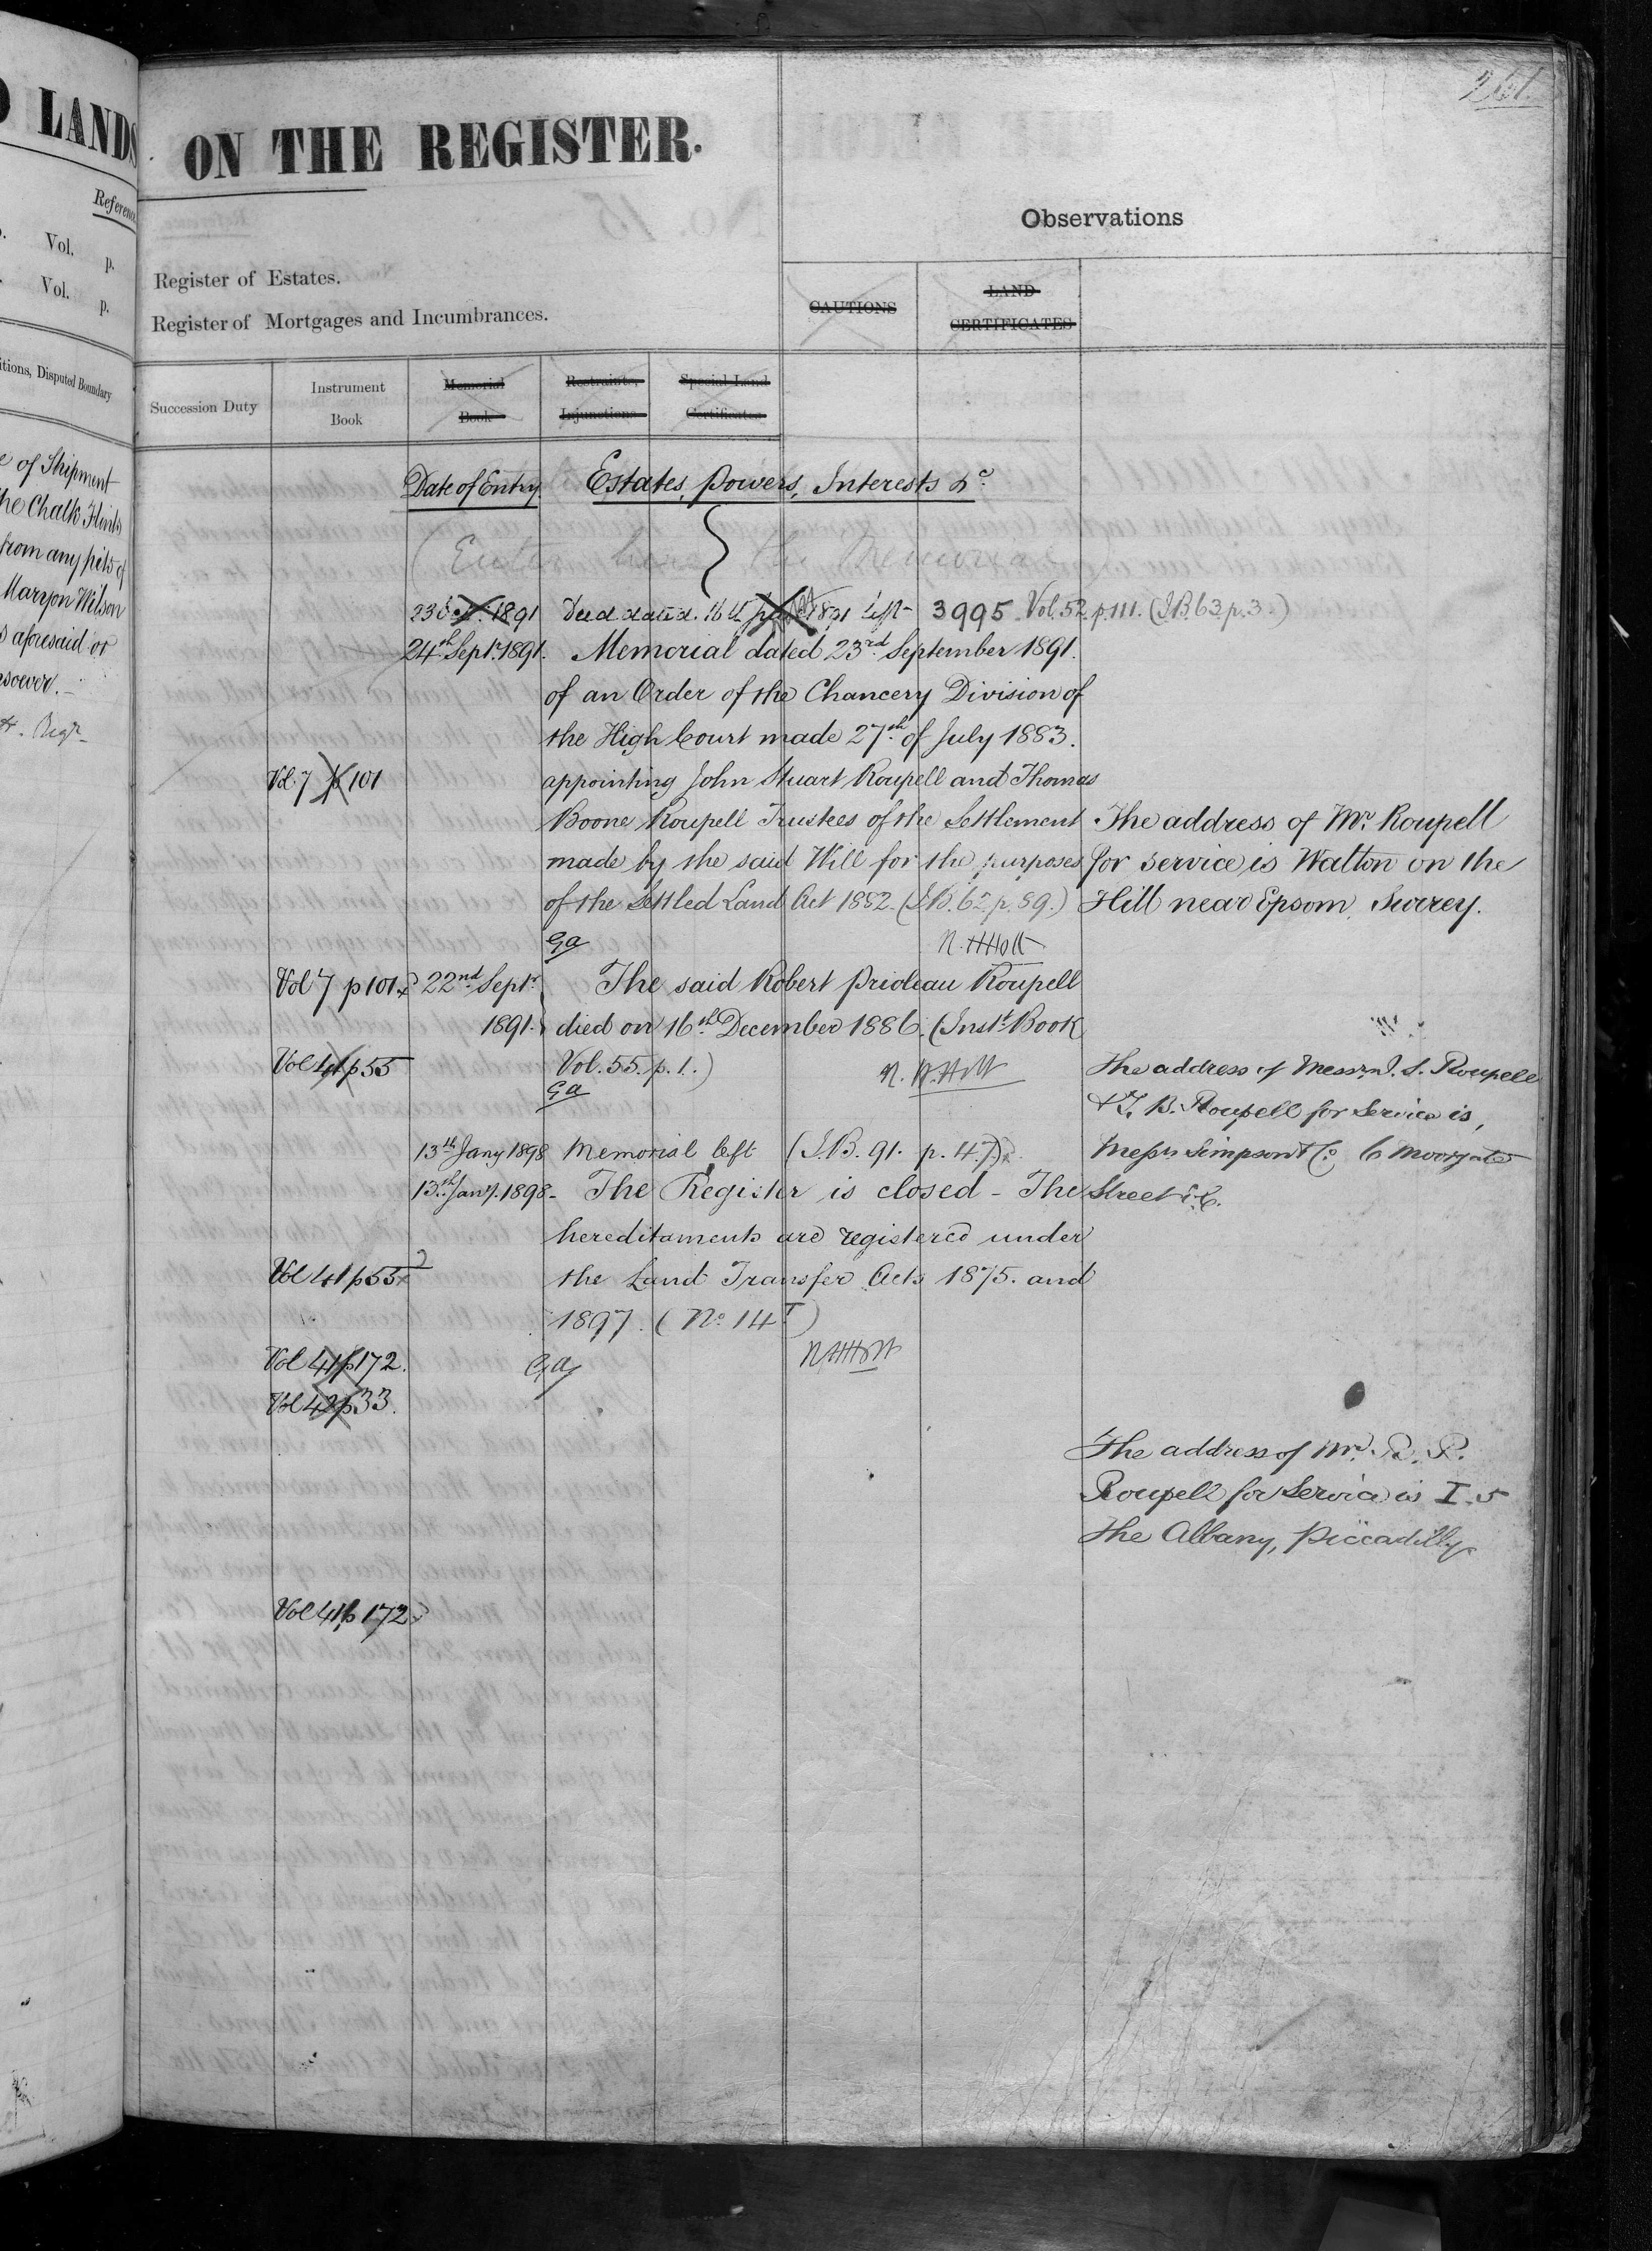 D LANDS
Reference
Vol. p.
Vol. p.
itions, Disputed Boundary
e of Shipment
the Chalk Flints
from any pits of
Maryon Wilson
s aforesaid or
soever.
261.
ON THE REGISTER.
Observations
Register of Estates.
Register of Mortgages and Incumbrances.
CAUTIONS
LAND
CERTIFICATES
Succession Duty
Instrument
Book
Memorial
Book
Restraints,
Injunctions
Special Land
Certificates
Date of Entry. Estates, Powers, Interests &c
(Enter here the Memorial)
23d 1891 Deed dated 16th 1891 left 3995. Vol. 52 p. 111. (I.B. 63 p. 3.)
24th Sept. 1891. Memorial dated 23rd September 1891.
of an Order of the Chancery Division of
the High Court made 27th of July 1883.
Vol. 7 p 101
appointing John Stuart Roupell and Thomas
Boone Roupell Trustees of the Settlement
made by the said Will for the purposes
of the Settled Land Act 1882. (I.B. 62 p. 89.)
Ga N.H.Holt
The address of Mr. Roupell
for service is Walton on the
Hill near Epsom, Surrey.
Vol 7 p 101. 22nd Septr. The said Robert Prioleau Roupell
1891. died on 16th December 1886. (Inst. Book
Vol 41 p 55 Vol. 55. p. 1.)
Ga
The address of Messrs J. S. Roupell
& T. B. Roupell for Service is,
Messrs Simpson & Co 6 Moorgate
Street E.C.
13th Jany 1898 Memorial left (I.B. 91. p. 47)
13th Jany. 1898. The Register is closed - The
hereditaments are registered under
Vol 41 p 55 the Land Transfer Acts 1875. and
1897. (No. 14T)
Vol 41 p 172. Ga
Vol 42 p 33.
The address of Mr. R. P.
Roupell for Service is I. 5
The Albany, Piccadilly
Vol 41 p 172